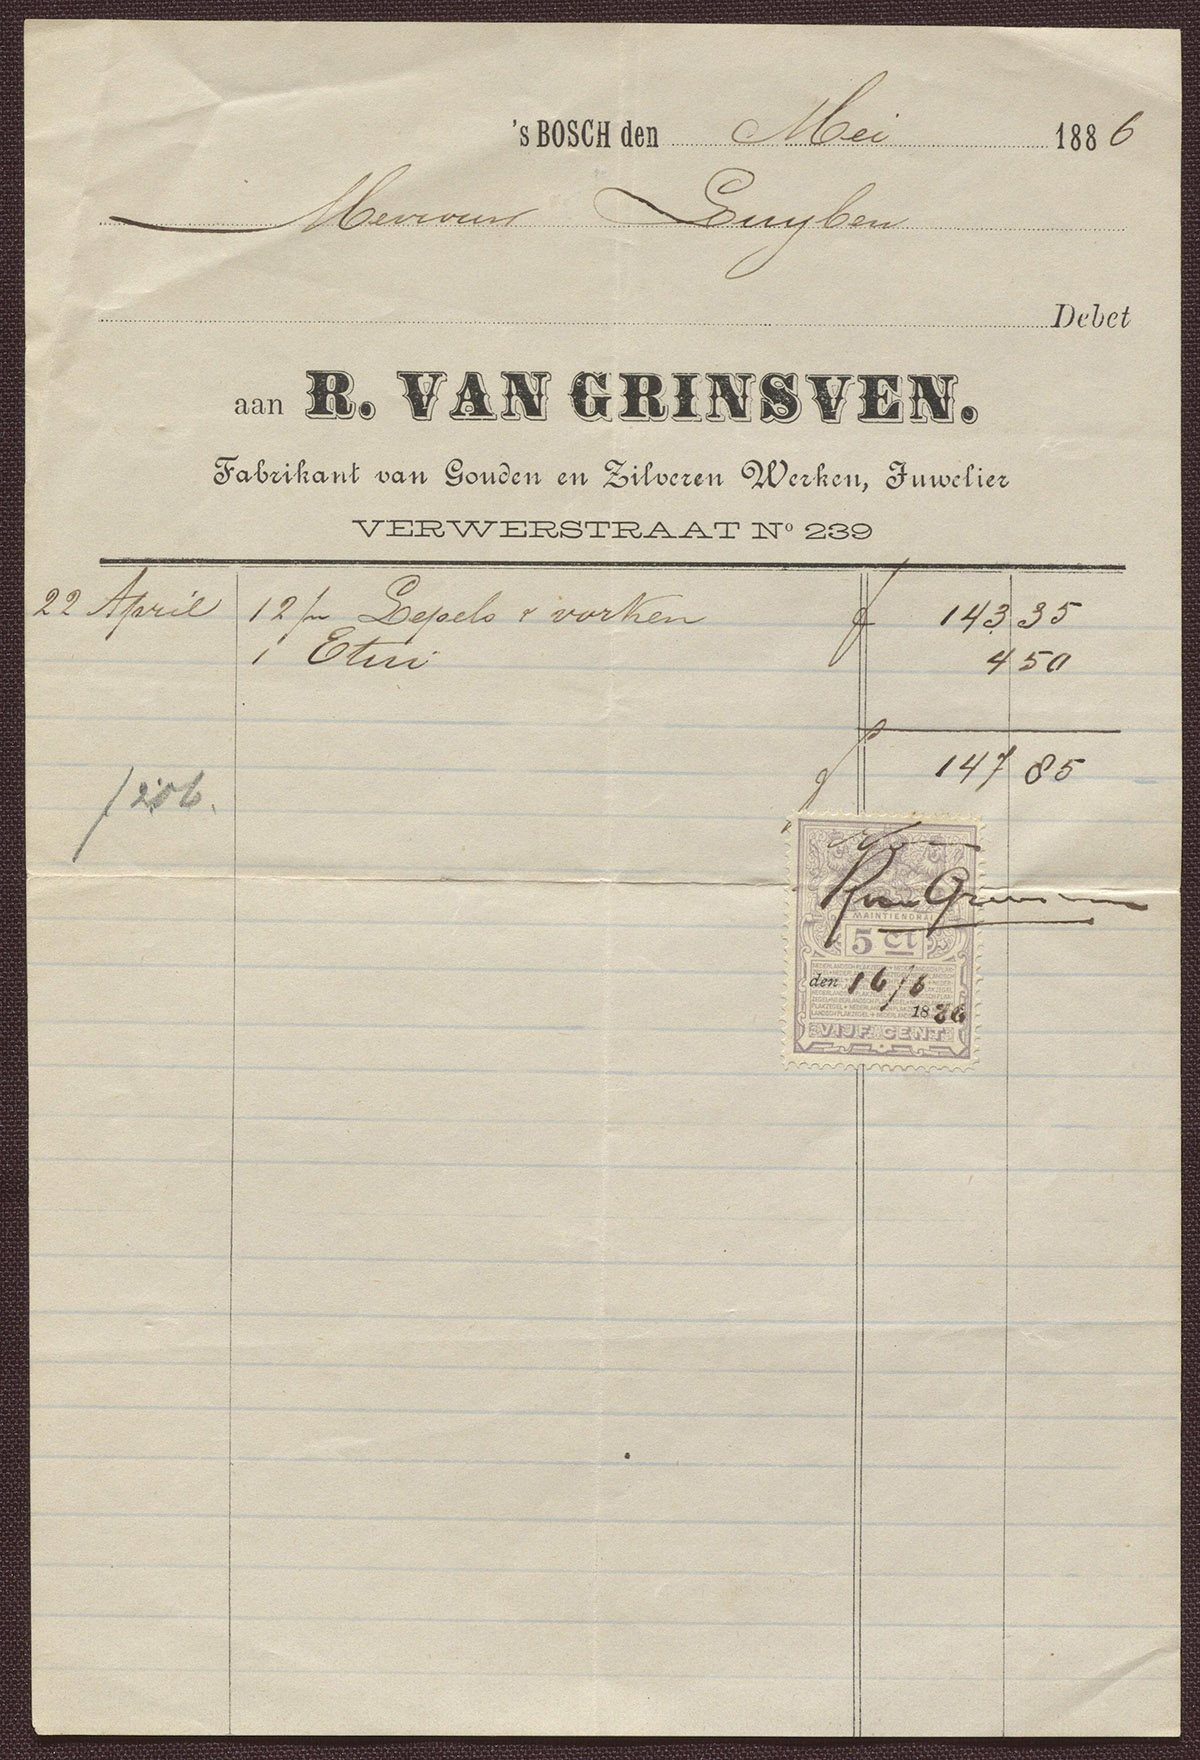 's BOSCH den Mei 1886
Mevrouw Luyben
Debet
aan R. VAN GRINSVEN.
Fabrikant van Gouden en Zilveren Werken, Juwelier
VERWERSTRAAT No 239
22 April 12 pr Lepels & vorken f 143,35
1 Etui 4 50
f 147 85
f206.
R van Grinsven
MAINTIENDRAI
5 Ct
den 16/6
1886
VIJF CENT